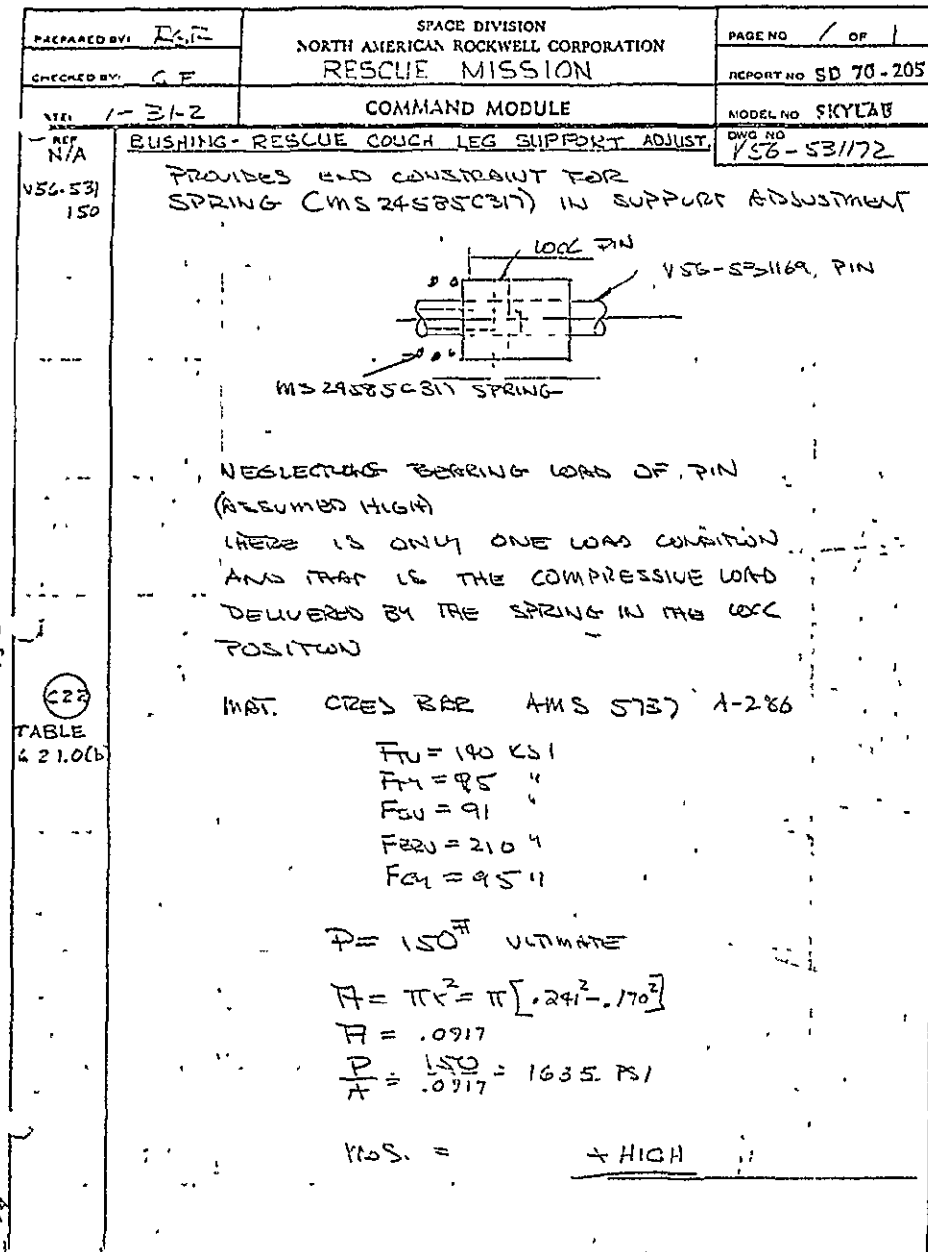 PREPARED BY:
SPACE DIVISION
NORTH AMERICAN ROCKWELL CORPORATION
RESCUE MISSION
PAGE NO 1 OF 1
CHECKED BY: G F
REPORT NO SD 70-205
1-31-2
COMMAND MODULE
MODEL NO SKYLAB
REF
N/A
BUSHING - RESCUE COUCH LEG SUPPORT ADJUST.
DWG NO
V56-531172
V56-531
150
PROVIDES END CONSTRAINT FOR
SPRING (MS 24585C317) IN SUPPORT ADJUSTMENT
LOCK PIN
V56-531169, PIN
MS 24585C317 SPRING
NEGLECTING BEARING LOAD OF PIN
(ASSUMED HIGH)
THERE IS ONLY ONE LOAD CONDITION
AND THAT IS THE COMPRESSIVE LOAD
DELIVERED BY THE SPRING IN THE LOCK
POSITION
C22
TABLE
6 2 1.0(b)
MAT. CRES BAR AMS 5737 A-286
FTU = 140 KSI
FTY = 95 "
FSU = 91 "
FBRU = 210 "
FCY = 95 "
P = 150# ULTIMATE
A = πr² = π[.241² - .170²]
A = .0917
P/A = 150/.0917 = 1635. PSI
M.S. = + HIGH